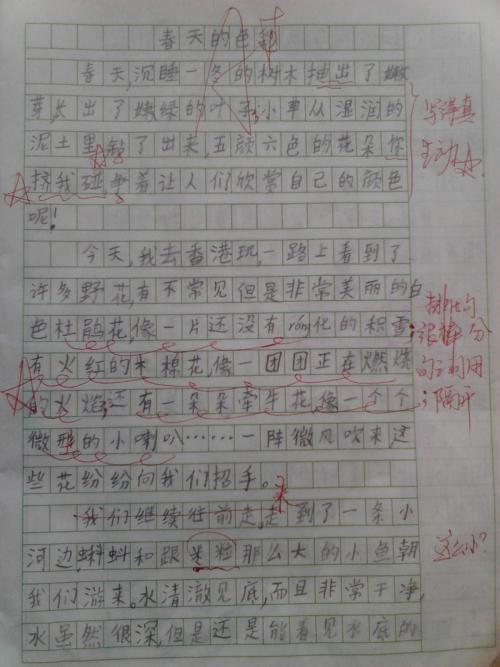 春天的色彩
春天,沉睡一冬的树木抽出了嫩
芽,长出了嫩绿的叶子;小草从湿润的
泥土里钻了出来,五颜六色的花朵你
挤我碰争着让人们欣赏自己的颜色
呢!
今天,我去香港玩,一路上看到了
许多野花,有不常见但是非常美丽的白
色杜鹃花,像一片还没有róng化的积雪;
有火红的木棉花,像一团团正在燃烧
的火焰;还有一朵朵牵牛花,像一个个
微型的小喇叭……一阵微风吹来,这
些花纷纷向我们招手。
我们继续往前走,走到了一条小
河边,蝌蚪和跟米粒那么大的小鱼朝
我们游来。水清澈见底,而且非常干净,
水虽然很深,但是还是能看见水底的
写得真
生动
排比句
很棒 分
句之间用
;隔开
来
这么小?